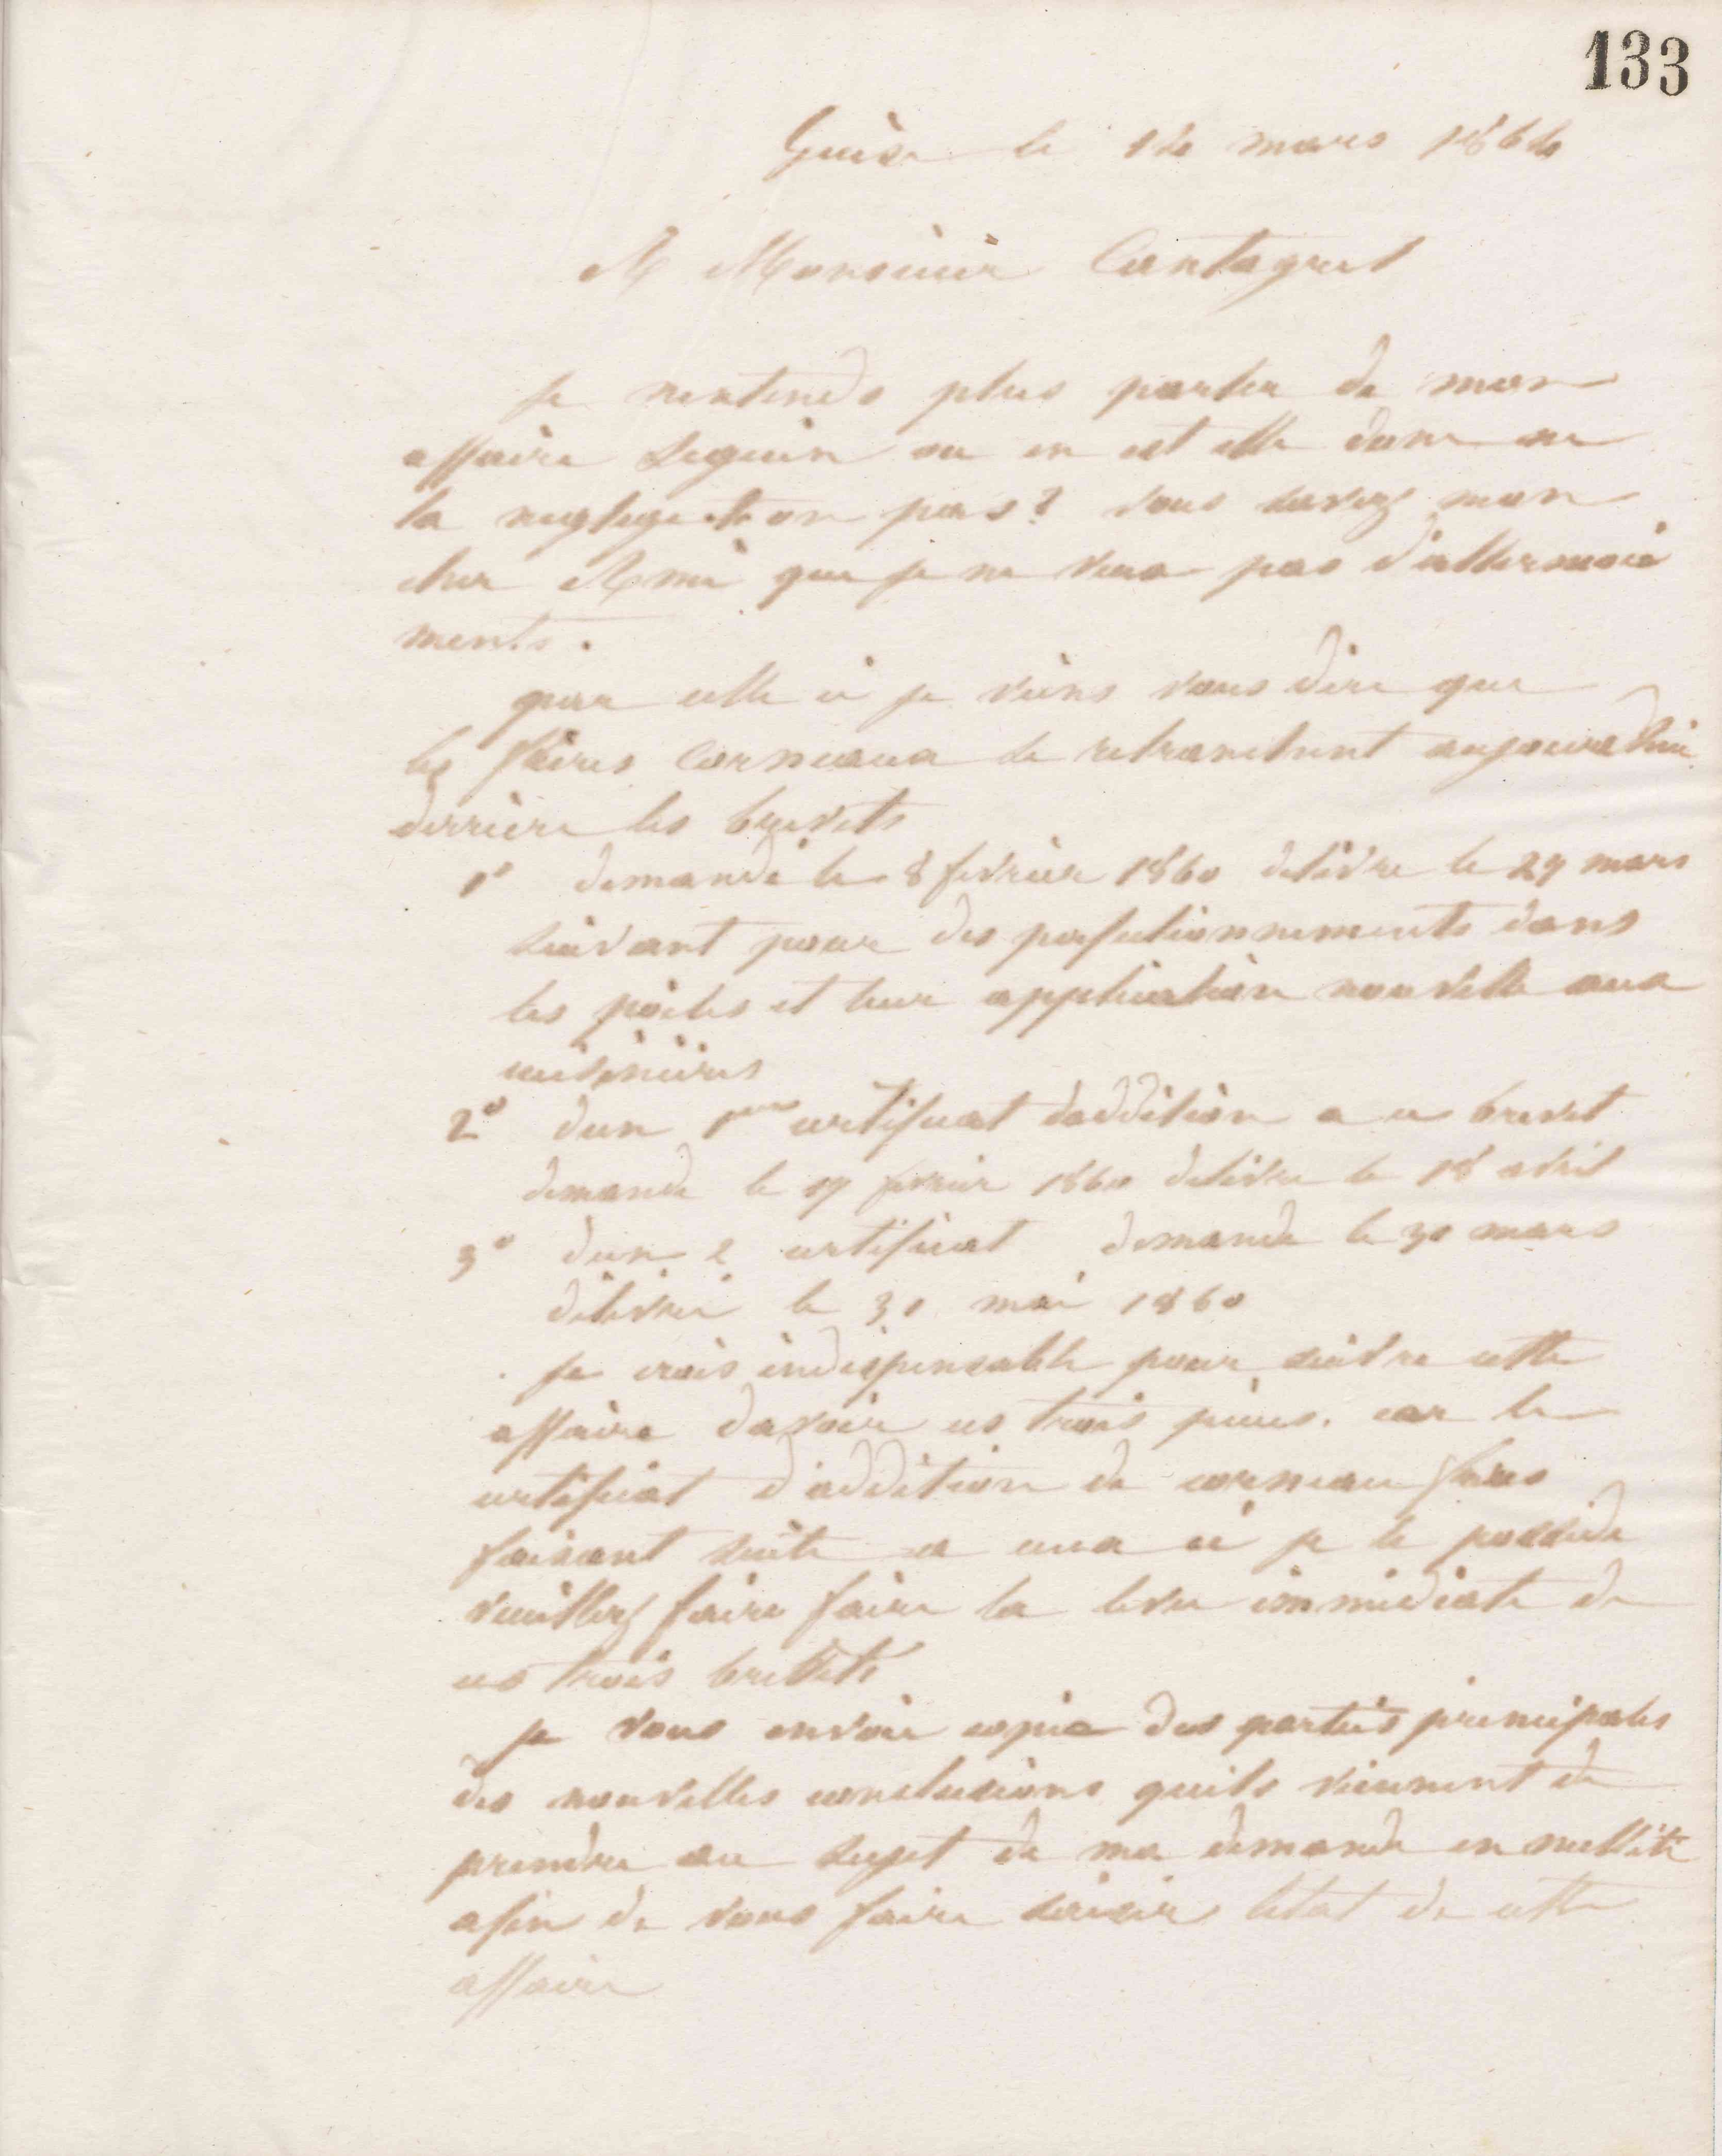 133
Guise le 14 mars 1864
A Monsieur Cantagrel
Je nentends plus parler de mon
affaire Seguin ou en est elle donc ne
la neglige-t-on pas? vous savez mon
cher Ami que je ne veux pas d'attermoie
ments.
par celle ci je viens vous dire que
les frères Corneaux se retranchent aujourdhui
derrière les brevets
1° demandé le 8 fevrier 1860 delivre le 29 mars
suivant pour des perfectionnements dans
les poêles et leur application nouvelle aux
cuisinières
2° dun 1er certificat daddition a ce brevet
demande le 17 fevrier 1860 delivre le 18 avril
3° dun 2 certificat demande le 30 mars
délivré le 30 mai 1860
Je crois indispensable pour suivre cette
affaire davoir ces trois pièces. car le
certificat d'addition de corneau frères
faisant suite a ceux ci je le possede
veuillez faire faire la levee immédiate de
ces trois brevets
je vous envoie copie des parties principales
des nouvelles conclusions quils viennent de
prendre au sujet de ma demande en nullité
afin de vous faire saisir letat de cette
affaire